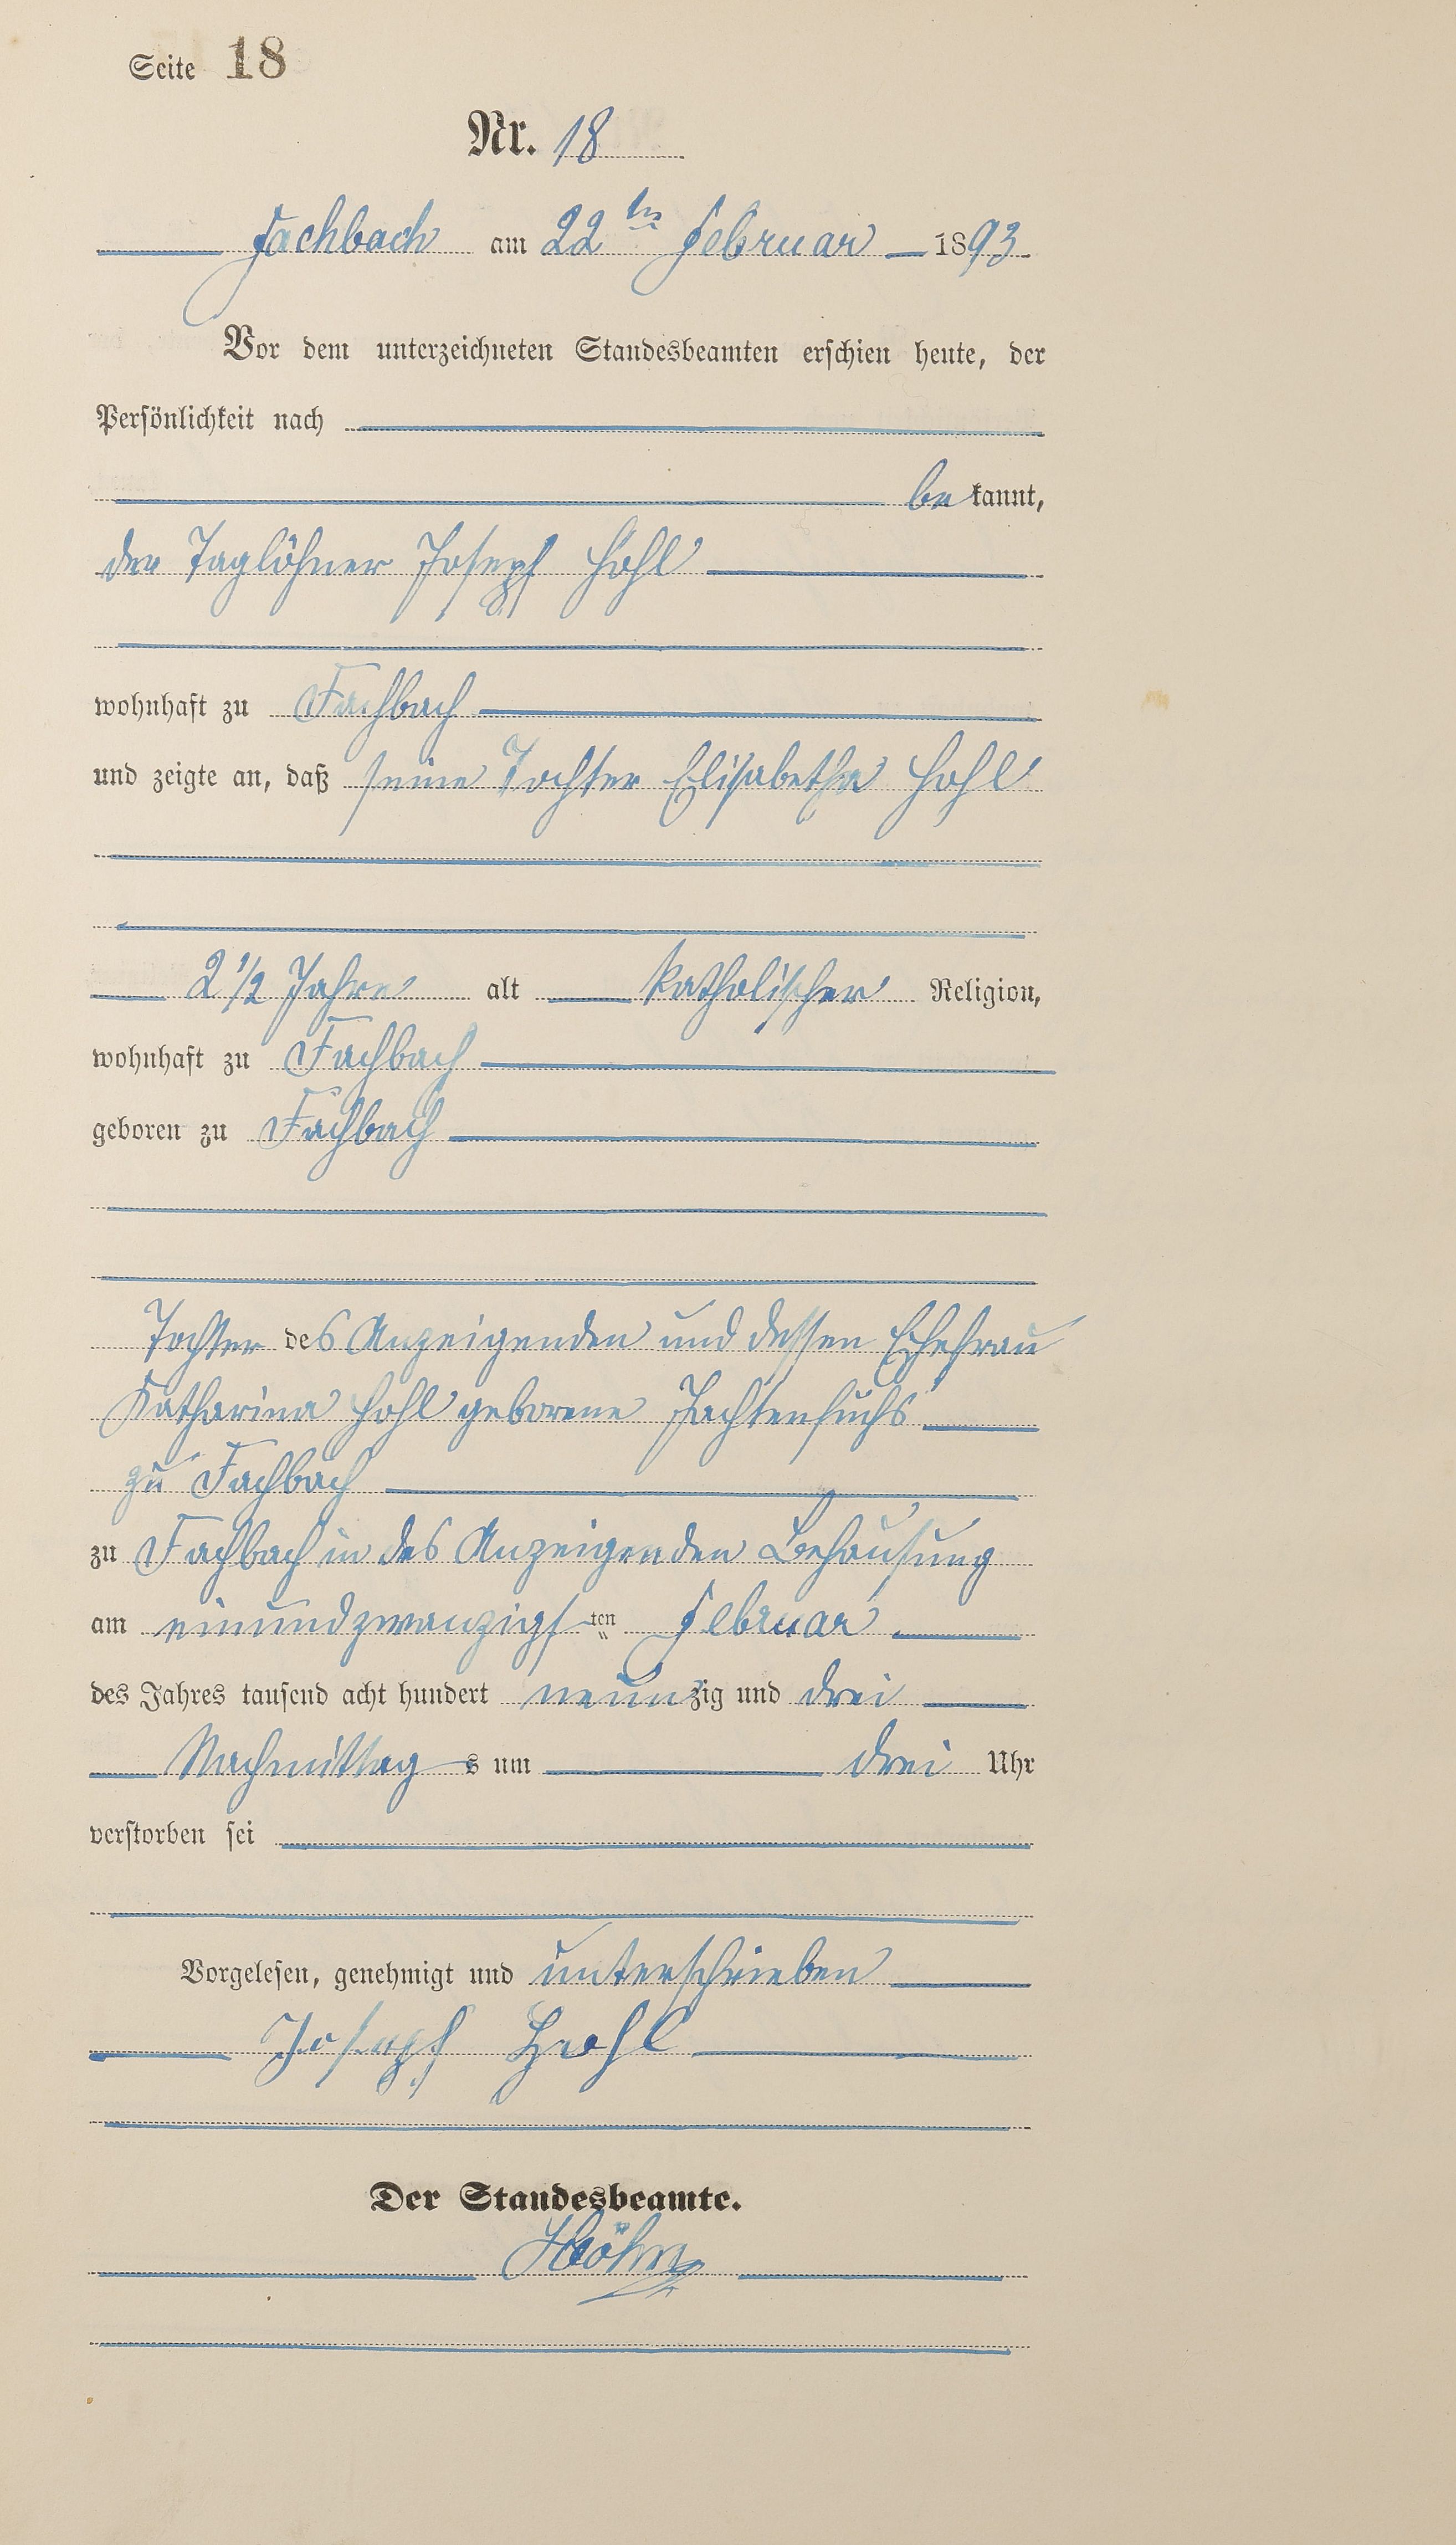 Seite 18
Nr. 18
Fachbach am 22ten Februar 1893
Vor dem unterzeichneten Standesbeamten erschien heute, der
Persönlichkeit nach
bekannt,
der Taglöhner Joseph Hohl
wohnhaft zu Fachbach
und zeigte an, daß seine Tochter Elisabetha Hohl
2 1/2 Jahre alt katholischer Religion,
wohnhaft zu Fachbach
geboren zu Fachbach
Tochter des Anzeigenden und dessen Ehefrau
Katharina Hohl geborene
zu Fachbach
zu Fachbach in des Anzeigenden Behausung
am einundzwanzigsten Februar
des Jahres tausend acht hundert neunzig und drei
Nachmittags um drei Uhr
verstorben sei
Vorgelesen, genehmigt und unterschrieben
Joseph Hohl
Der Standesbeamte.